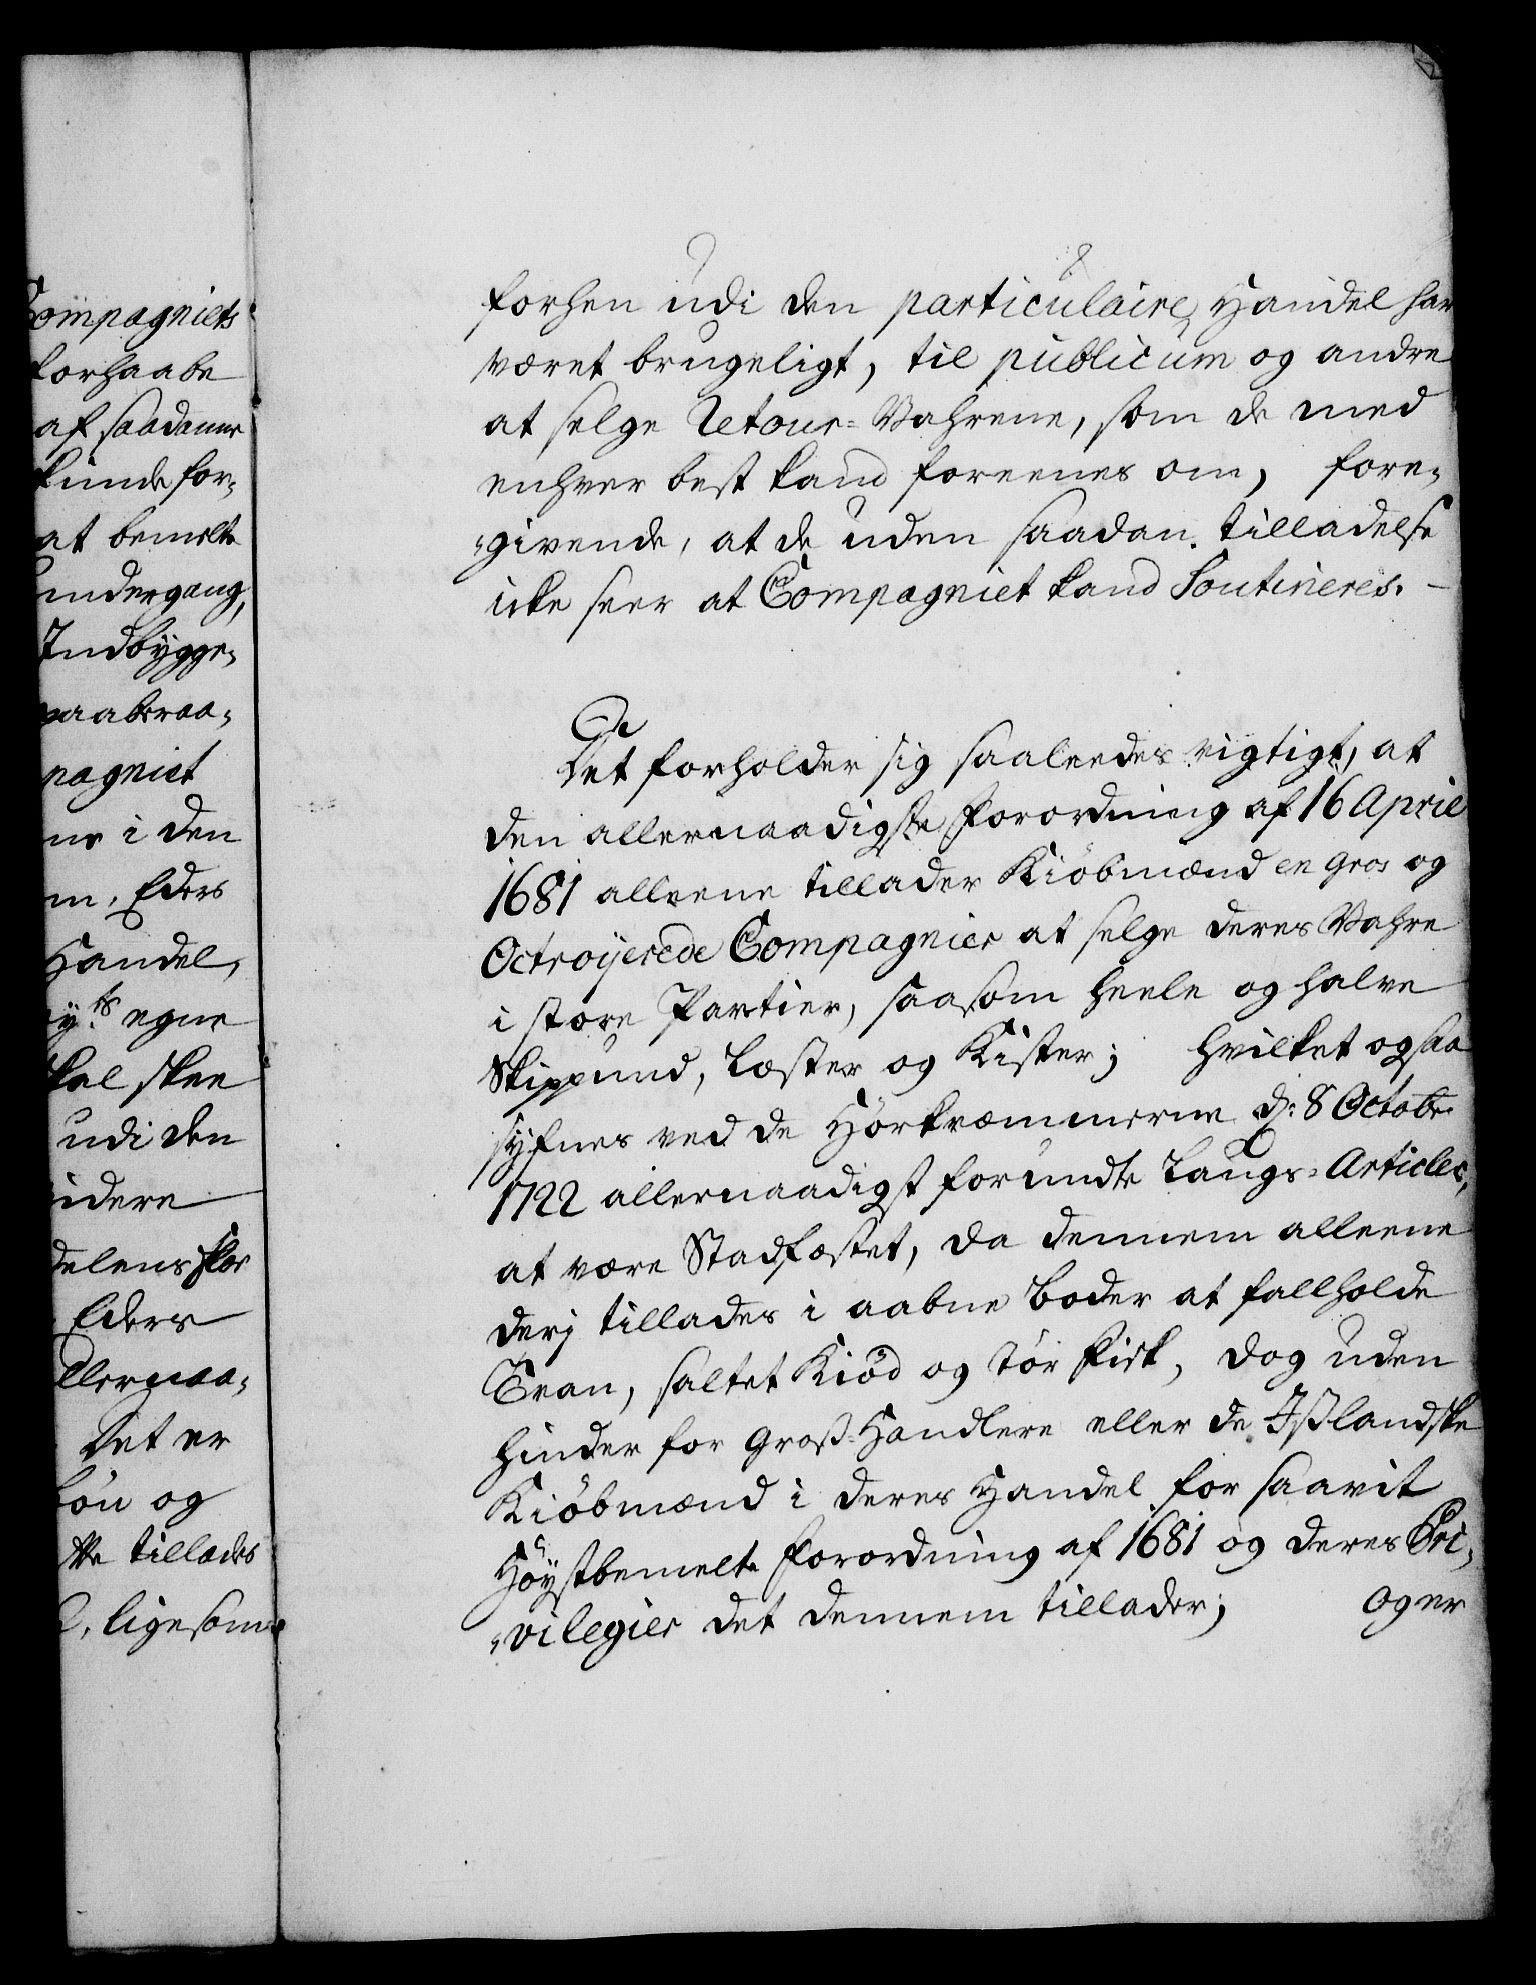 Compagniets
forhaabe
af saadanne
kunde for-
at bemelte
undergang,
Indbygge-
paaberaa-
pagniet
ne i den
m, Eders
Handel,
egne
skal skee
udi den
videre
delens
Eders
allernaa-
Det er
bön og
tte tillades
ligesom
forhen udi den particulaire Handel har
været brugeligt, til publicum og andre
at selge Retour-Vahrene, som de med
enhver best kand foreenes om, fore-
-givende, at de uden saadan tilladelse
icke seer at Compagniet kand Soutineres. -
Det forholder sig saaleedes rigtigt, at
den allernaadigste Forordning af 16 April
1681 alleene tillader Kiöbmænd en Gros og
Octroyerede Compagnier at selge deres Vahre
i store Partier, saasom heele og halve
Skippund, Læster og Kister; hvilket ogsaa
syfnes ved de Hörkræmmerne d: 8 Octobr
1722 allernaadigst forundte Laugs-Articler,
at være Stadfæstet, da dennem alleene
derj tillades i aabne Boder at fallholde
Tran, saltet Kiöd og tör Fisk, dog uden
hinder for Gross-Handlere eller de Isslandske
Kiöbmænd i deres Handel for saavit
Höystbemelte Forordning af 1681 og deres Pri-
-vilegier det dennem tillader; og er